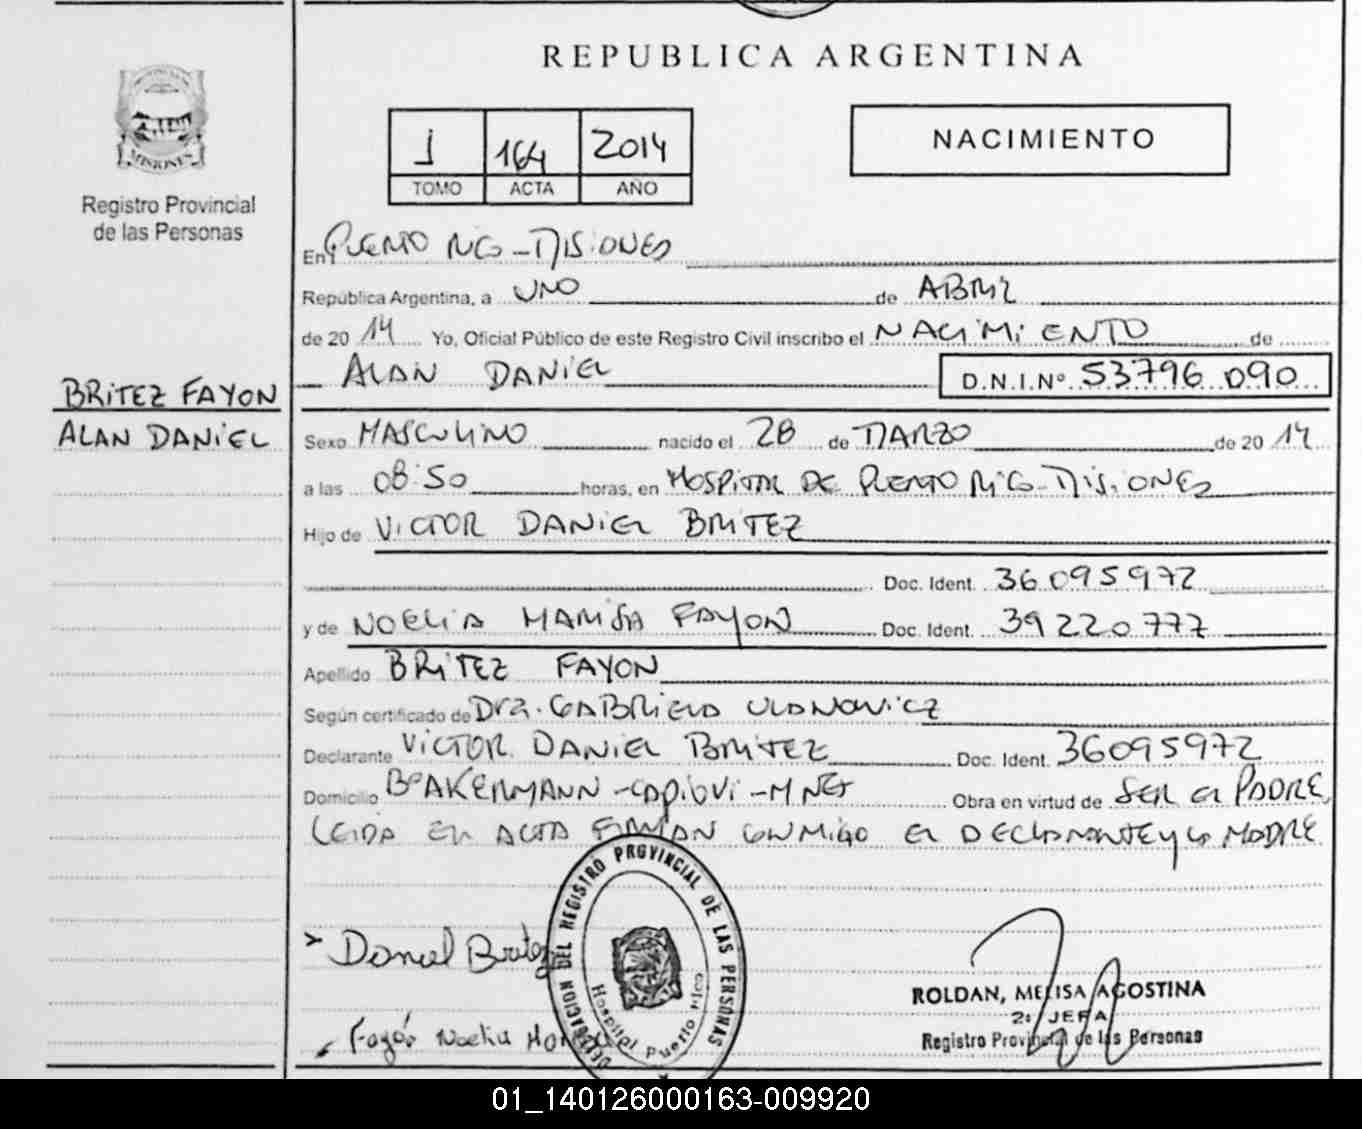 REPUBLICA ARGENTINA
MISIONES
Registro Provincial
de las Personas
J 164 2014
TOMO ACTA AÑO
NACIMIENTO
En PUERTO RICO - MISIONES
República Argentina, a UNO de ABRIL
de 20 14 Yo, Oficial Público de este Registro Civil inscribo el NACIMIENTO de
ALAN DANIEL D.N.I.Nº 53796 090
BRITEZ FAYON
ALAN DANIEL
Sexo MASCULINO nacido el 28 de MARZO de 20 14
a las 08:50 horas, en HOSPITAL DE PUERTO RICO - MISIONES
Hijo de VICTOR DANIEL BRITEZ
Doc. Ident. 36095972
y de NOELIA MARISA FAYON Doc. Ident. 39220777
Apellido BRITEZ FAYON
Según certificado de Dra. GABRIELA
Declarante VICTOR DANIEL BRITEZ Doc. Ident. 36095972
Domicilio Bº AKERMANN - CAPIOVI - MNES Obra en virtud de SER EL PADRE
LEIDA EL ACTA FIRMAN CONMIGO EL DECLARANTE Y LA MADRE
Daniel Britez
Fayón Noelia
DELEGACION DEL REGISTRO PROVINCIAL DE LAS PERSONAS
Hospital Puerto Rico
ROLDAN, MELISA AGOSTINA
2º JEFA
Registro Provincial de las Personas
01_140126000163-009920